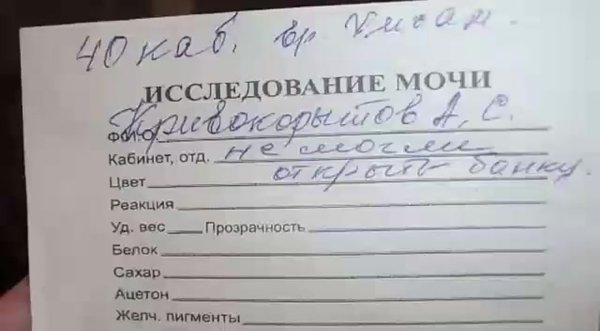 40 каб. вр
ИССЛЕДОВАНИЕ МОЧИ
Ф.И.О. Кривокорытов А. С.
Кабинет, отд. не могли
Цвет открыть банку.
Реакция
Уд. вес Прозрачность
Белок
Сахар
Ацетон
Желч. пигменты